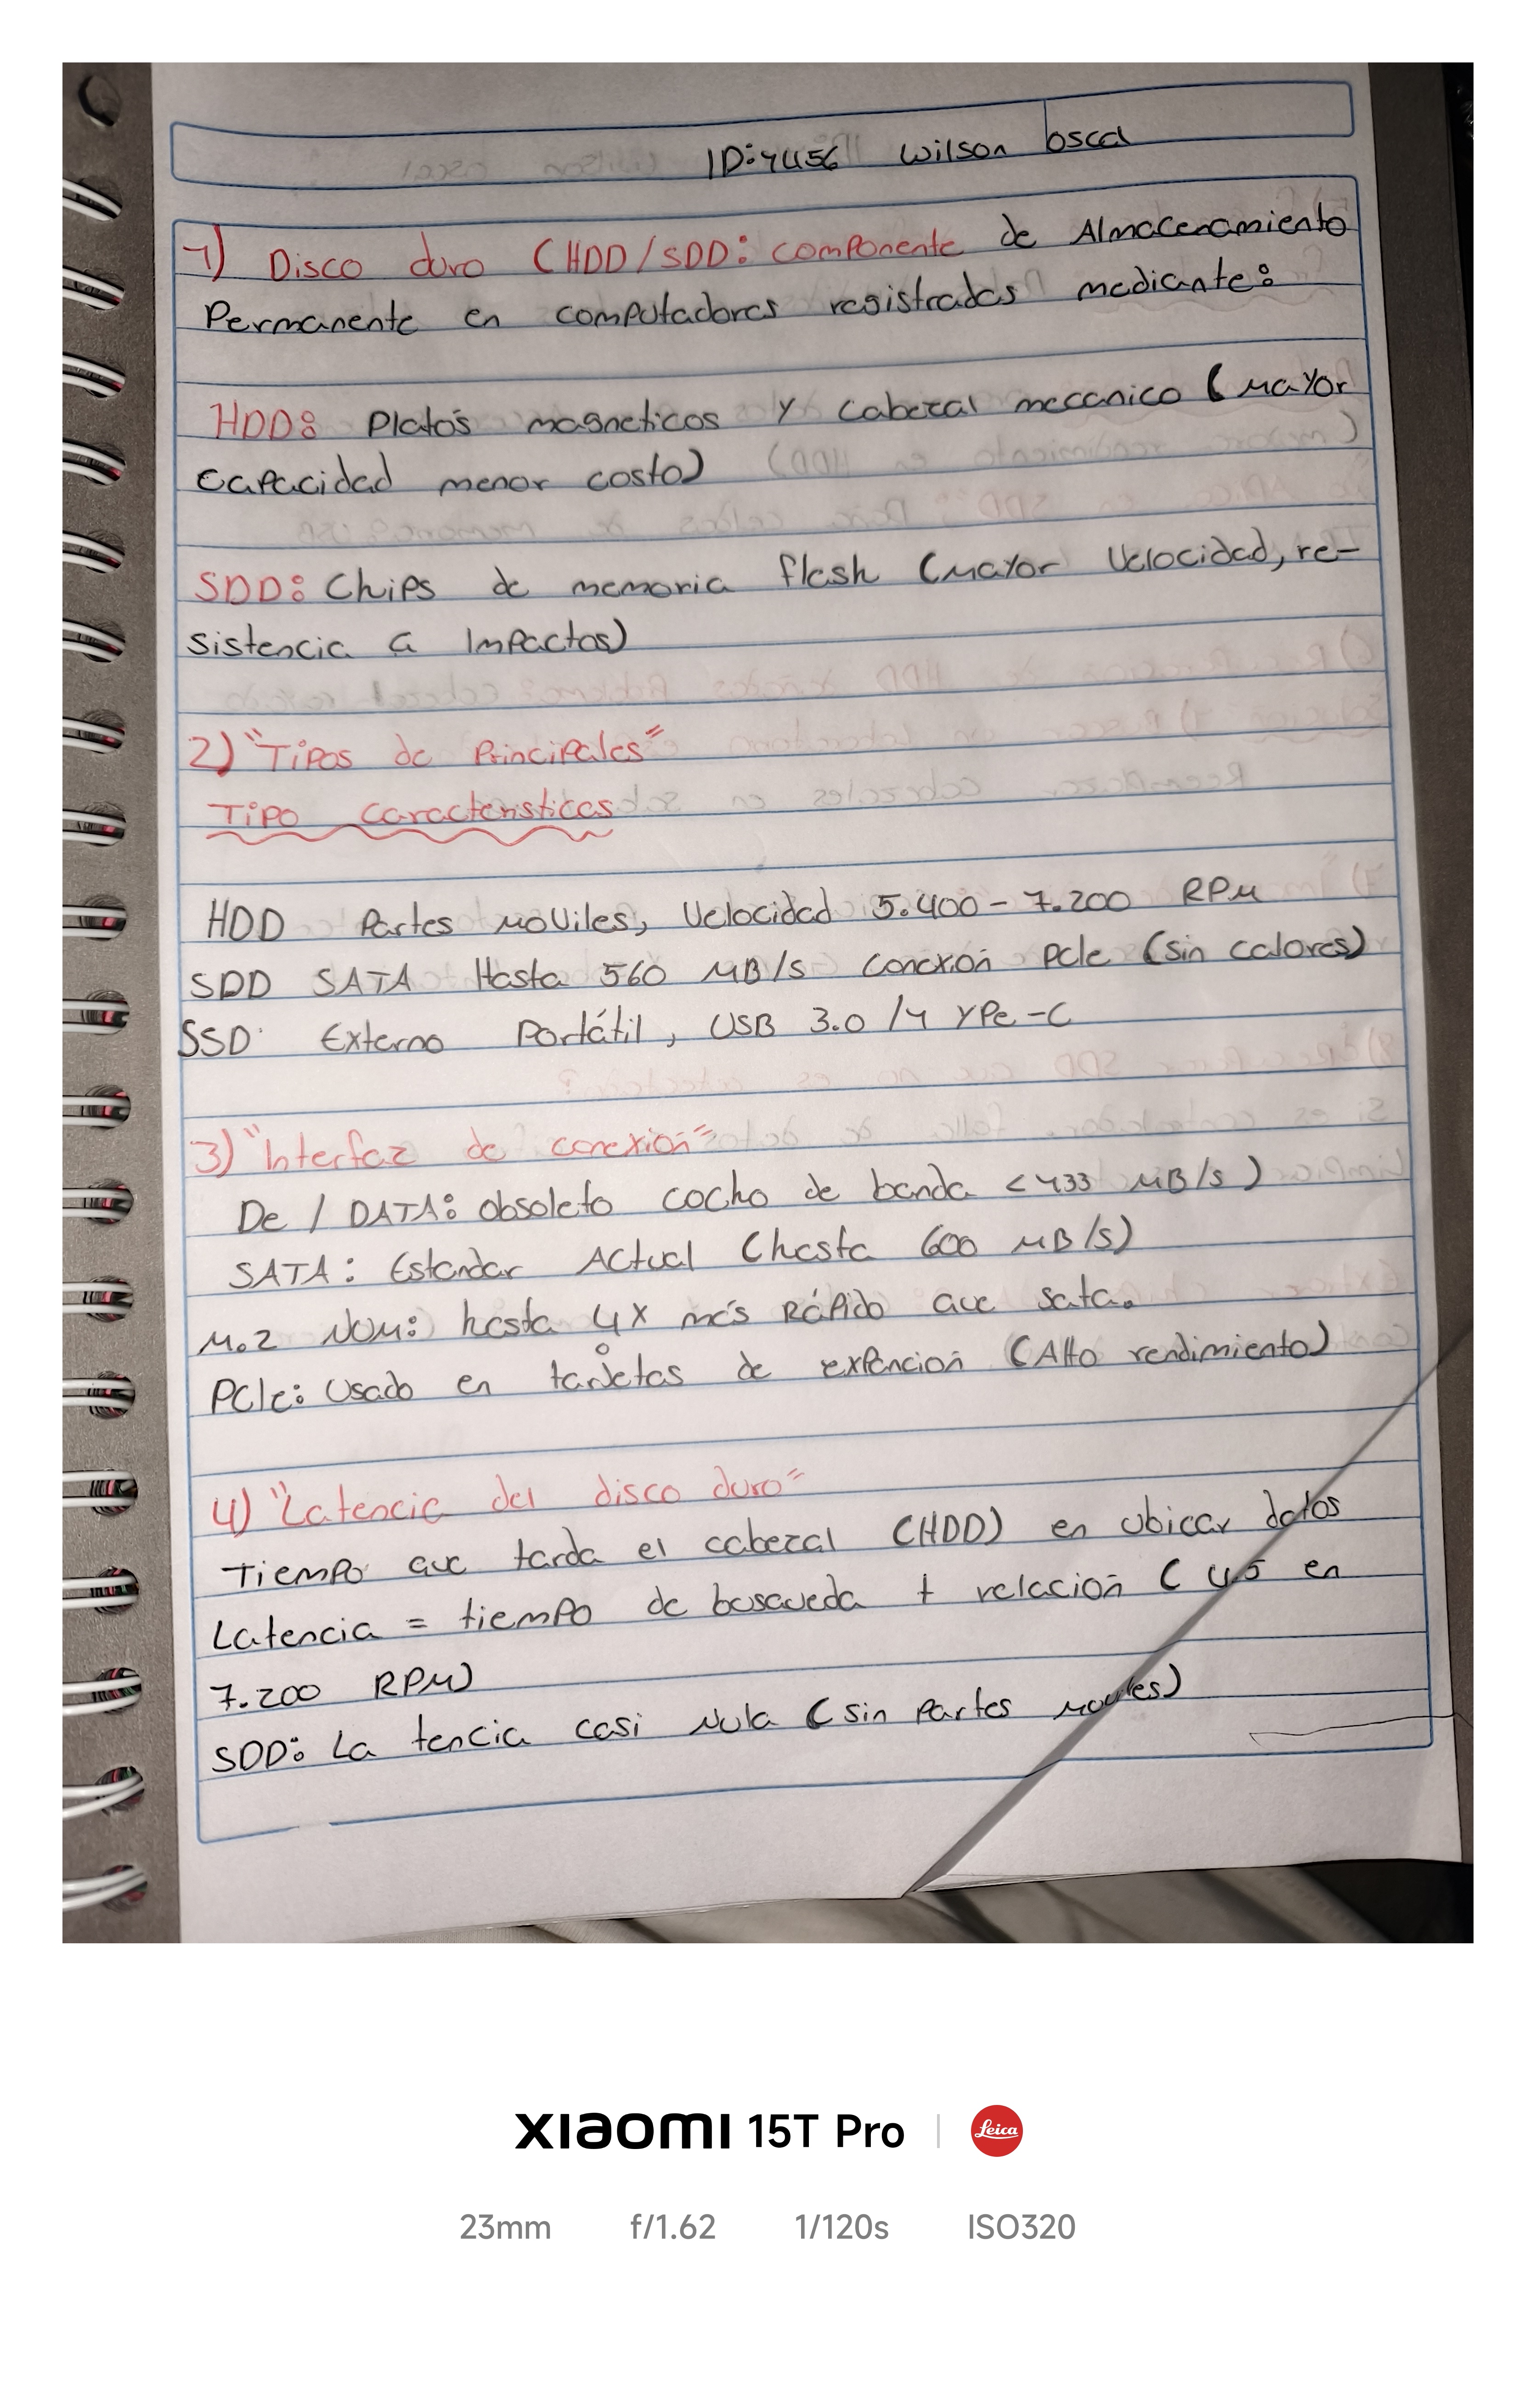 ID:7456 Wilson oscal
1) Disco duro (HDD/SDD: componente de Almacenamiento
Permanente en computadores registrados mediante:
HDD: Platos magneticos y cabezal mecanico (Mayor
capacidad menor costo)
SDD: Chips de memoria flash (Mayor Velocidad, re-
sistencia a Impactos)
2) "Tipos de Principales"
Tipo caracteristicas
HDD Partes Moviles, Velocidad 5.400 - 7.200 RPM
SDD SATA Hasta 560 MB/s conexion PCIe (sin calores)
SSD Externo Portátil, USB 3.0 /4 YPe-C
3) "Interfaz de conexión"
De / DATA: obsoleto cocho de banda <433 MB/s)
SATA: Estandar Actual (hasta 600 MB/s)
M.2 NOM: hasta 4X más Rápido que sata.
PCIe: Usado en tarjetas de expencion (Alto rendimiento)
4) "Latencia del disco duro"
Tiempo que tarda el cabezal (HDD) en ubicar datos
Latencia = tiempo de busqueda + relacion ( 45 en
7.200 RPM)
SDD: La tencia casi Nula (sin Partes Moviles)
XIAOMI 15T Pro | Leica
23mm f/1.62 1/120s ISO320